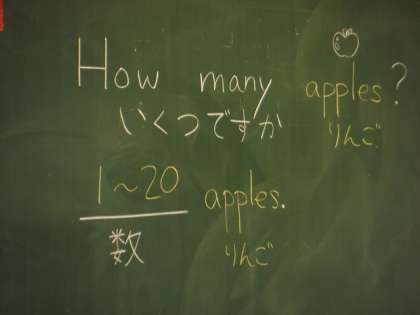 How many apples?
いくつですか りんご
1~20 apples.
数 りんご